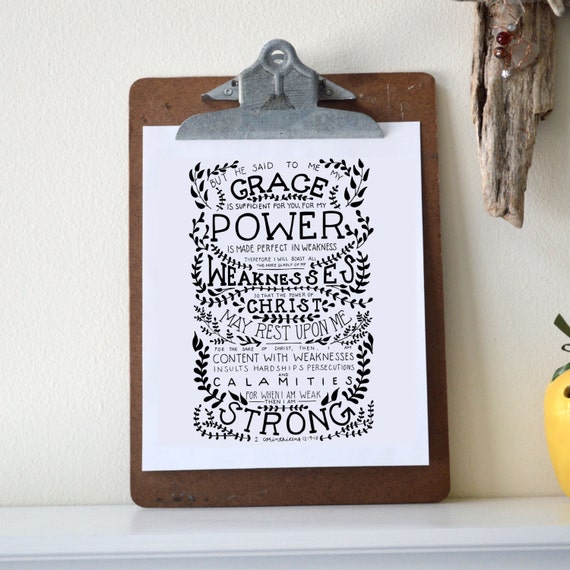 BUT HE SAID TO ME MY
GRACE
IS SUFFICIENT FOR YOU, FOR MY
POWER
IS MADE PERFECT IN WEAKNESS
THEREFORE I WILL BOAST ALL
THE MORE GLADLY OF MY
WEAKNESSES
SO THAT THE POWER OF
CHRIST
MAY REST UPON ME
FOR THE SAKE OF CHRIST, THEN, I AM
CONTENT WITH WEAKNESSES
INSULTS HARDSHIPS PERSECUTIONS
AND
CALAMITIES
FOR WHEN I AM WEAK
THEN I AM
STRONG
2 Corinthians 12:9-10